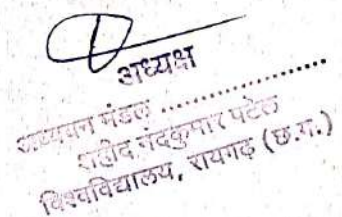 अध्यक्ष
अध्ययन मंडल ..................
शहीद नंदकुमार पटेल
विश्वविद्यालय, रायगढ़ (छ.ग.)